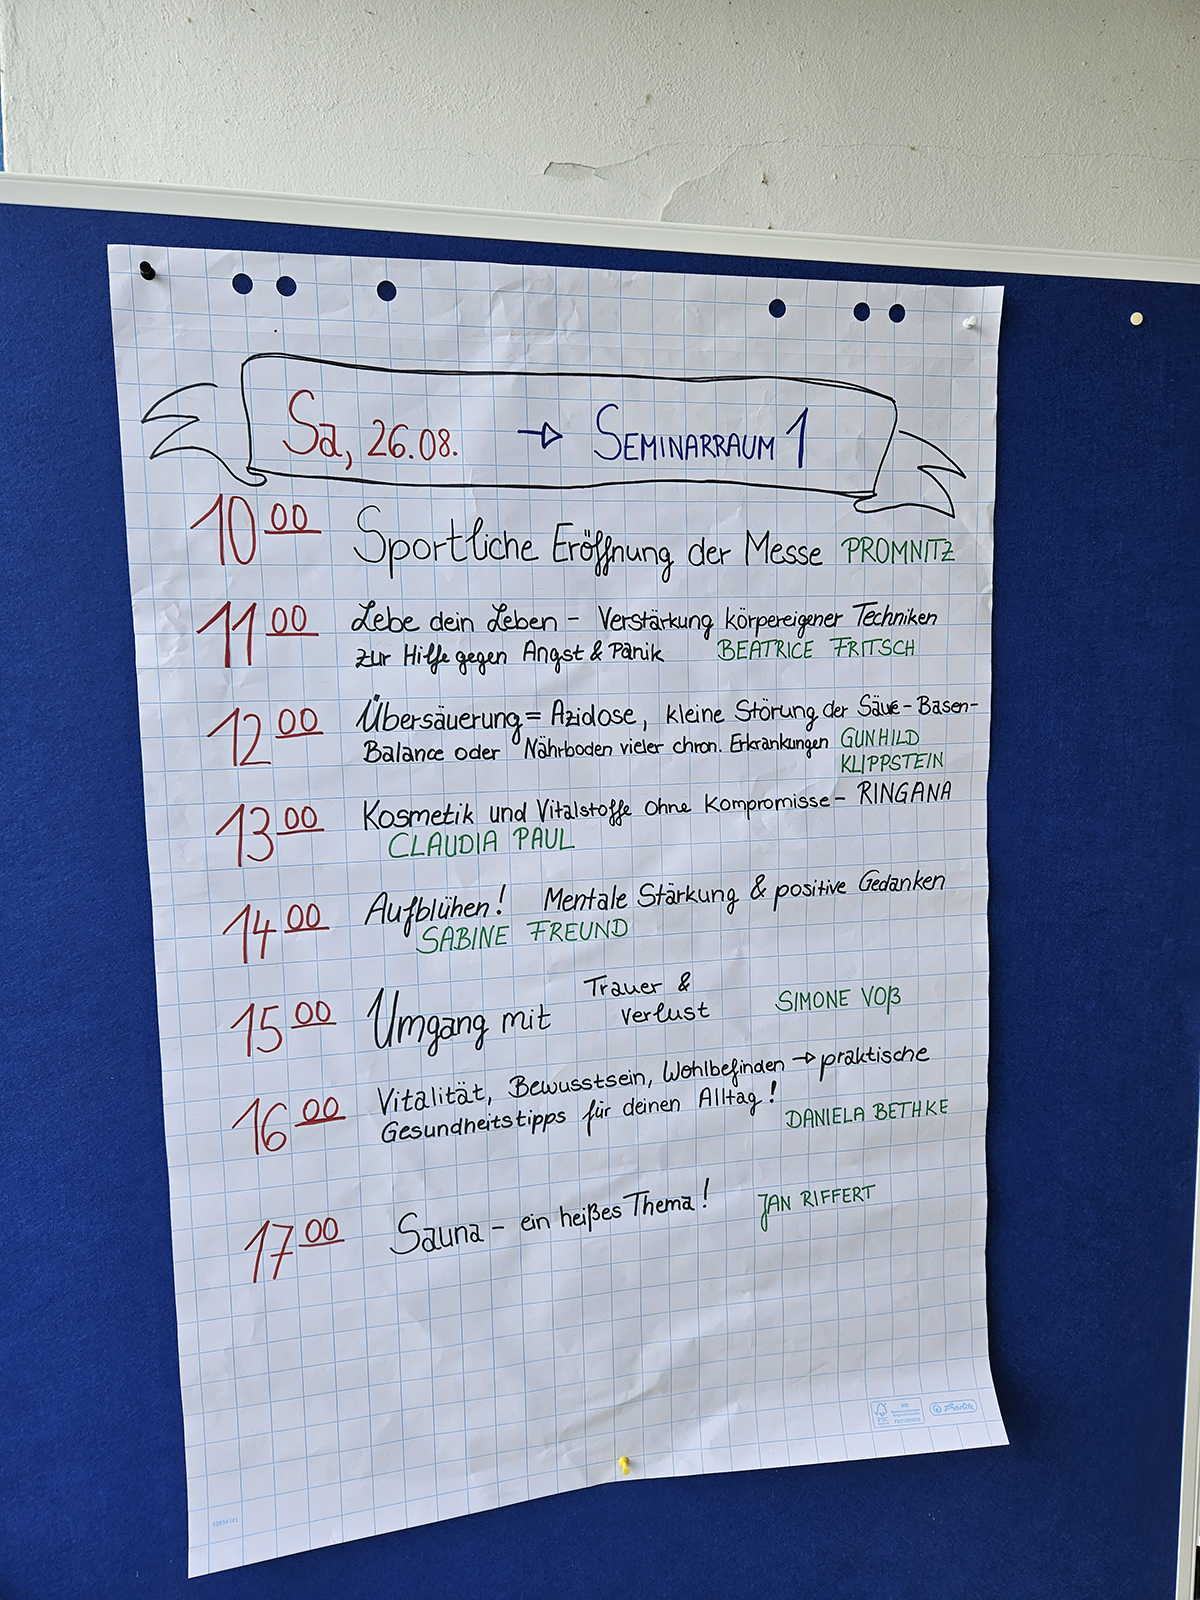 Sa, 26.08. → SEMINARRAUM 1
10 00 Sportliche Eröffnung der Messe PROMNITZ
11 00 Lebe dein Leben - Verstärkung körpereigener Techniken
zur Hilfe gegen Angst & Panik BEATRICE FRITSCH
12 00 Übersäuerung = Azidose, kleine Störung der Säure-Basen-
Balance oder Nährboden vieler chron. Erkrankungen GUNHILD
KLIPPSTEIN
13 00 Kosmetik und Vitalstoffe ohne Kompromisse - RINGANA
CLAUDIA PAUL
14 00 Aufblühen! Mentale Stärkung & positive Gedanken
SABINE FREUND
15 00 Umgang mit Trauer &
verlust SIMONE VOß
16 00 Vitalität, Bewusstsein, Wohlbefinden → praktische
Gesundheitstipps für deinen Alltag!
DANIELA BETHKE
17 00 Sauna - ein heißes Thema! JAN RIFFERT
FSC
MIX
herlitz